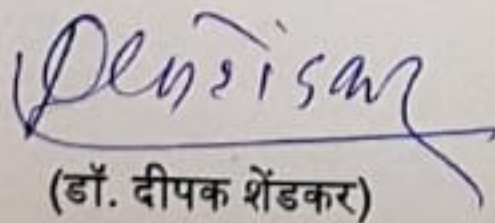 (डॉ. दीपक शेंडकर)